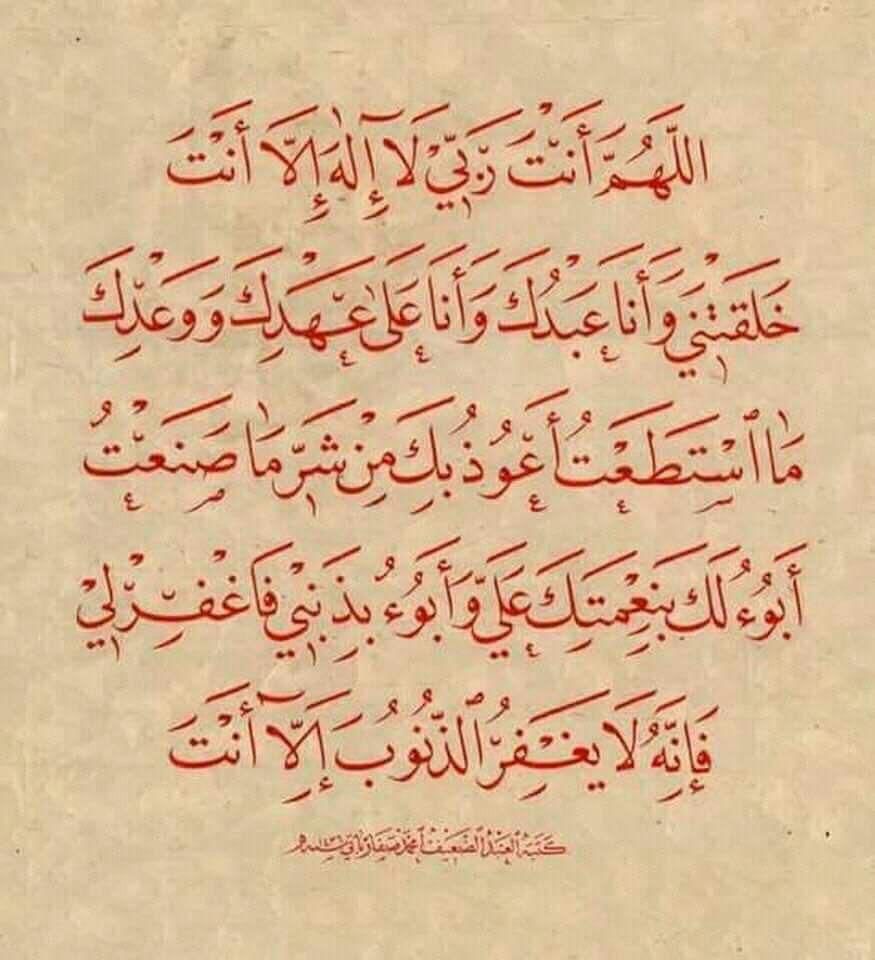 اللَّهُمَّ أَنْتَ رَبِّيْ لَآ إِلٰهَ إِلَّا أَنْتَ
خَلَقْتَنِيْ وَأَنَا عَبْدُكَ وَأَنَا عَلٰى عَهْدِكَ وَوَعْدِكَ
مَا ٱسْتَطَعْتُ أَعُوذُ بِكَ مِنْ شَرِّ مَا صَنَعْتُ
أَبُوْءُ لَكَ بِنِعْمَتِكَ عَلَيَّ وَأَبُوْءُ بِذَنْبِيْ فَاغْفِرْ لِيْ
فَإِنَّهُ لَا يَغْفِرُ ٱلذُّنُوبَ إِلَّآ أَنْتَ
كَتَبَهُ الْعَبْدُ الضَّعِيْف محمد صفار باتي